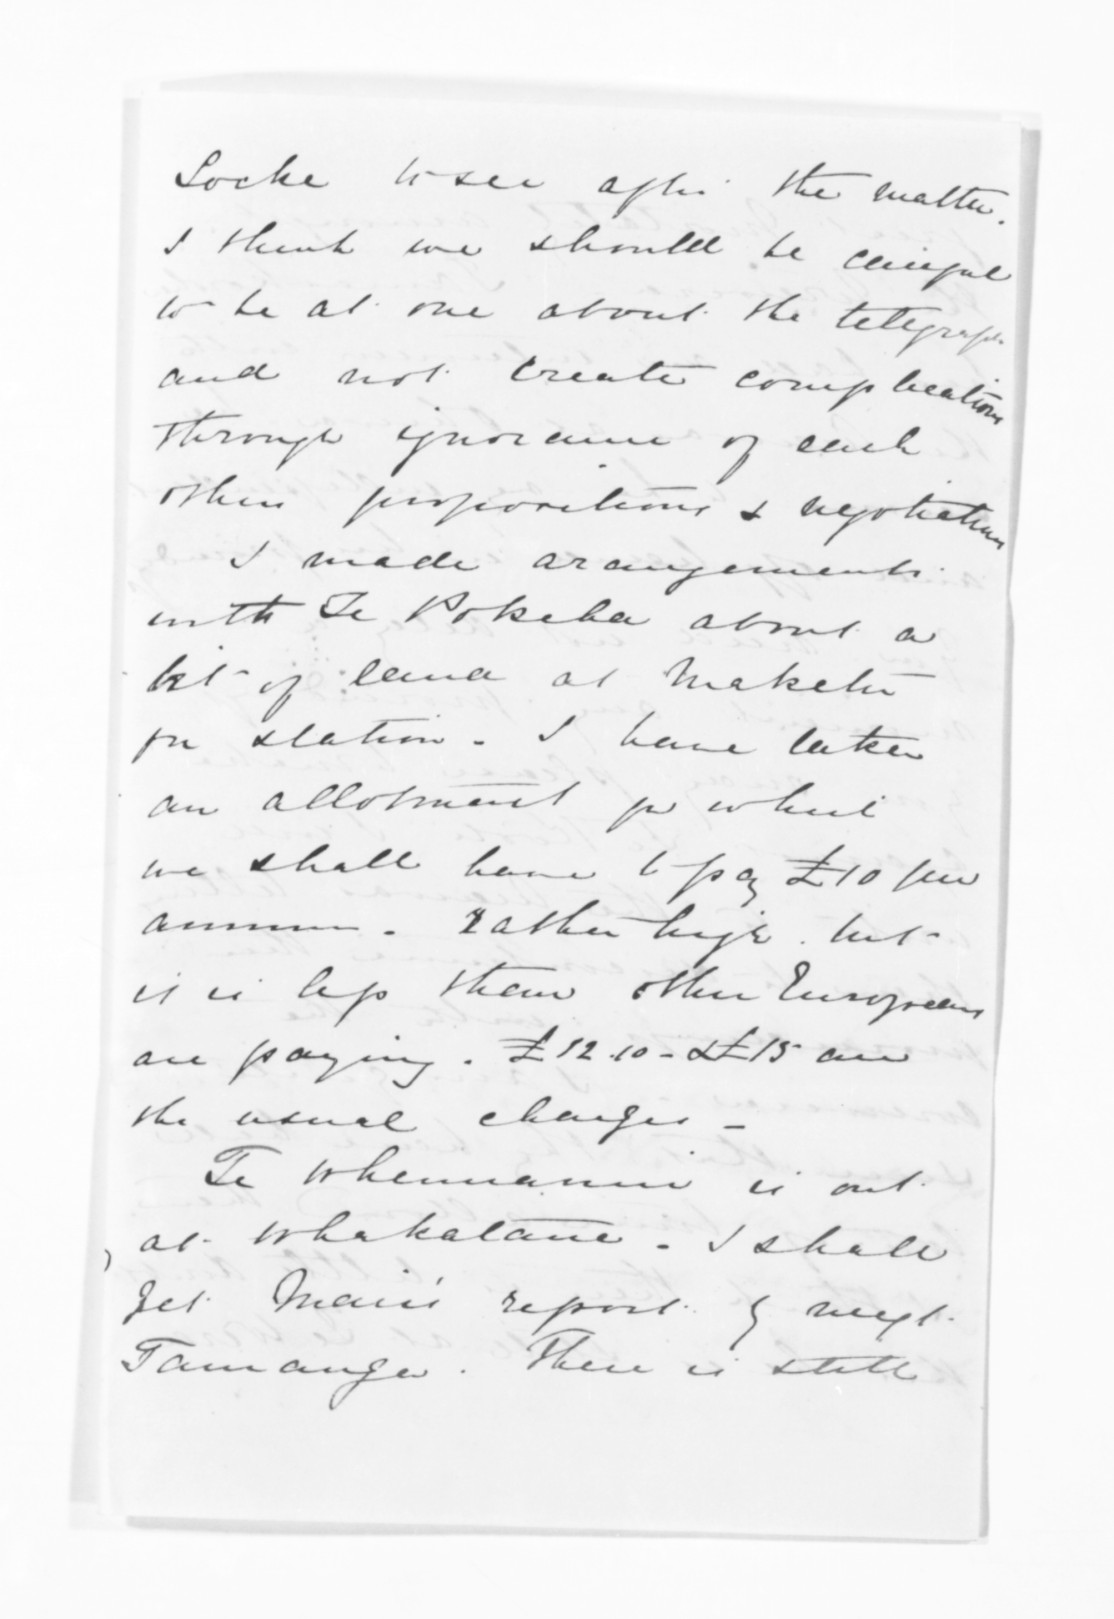 Locke to see after the matter.
I think we should be careful
to be at one about the telegraph
and not create complications
through ignorance of each
others propositions & negotiations
I made arangements
with Te Pokeha about a
bit of land at Maketu
for station - I have taken
an allotment for which
we shall have to pay £10 per
annum - rather high. but
it is less than other Europeans
are paying. £12.10 - & £15 are
the usual charges -
Te is out
at Whakatane - I shall
get Mair's report by next
Tauranga. There is still